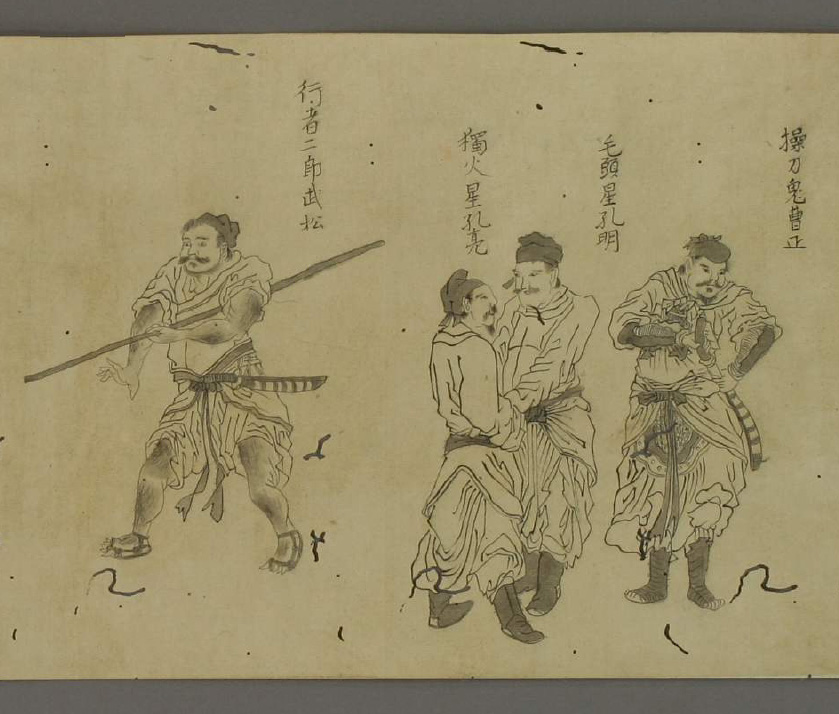 操刀鬼曹正
毛頭星孔明
獨火星孔亮
行者二郎武松